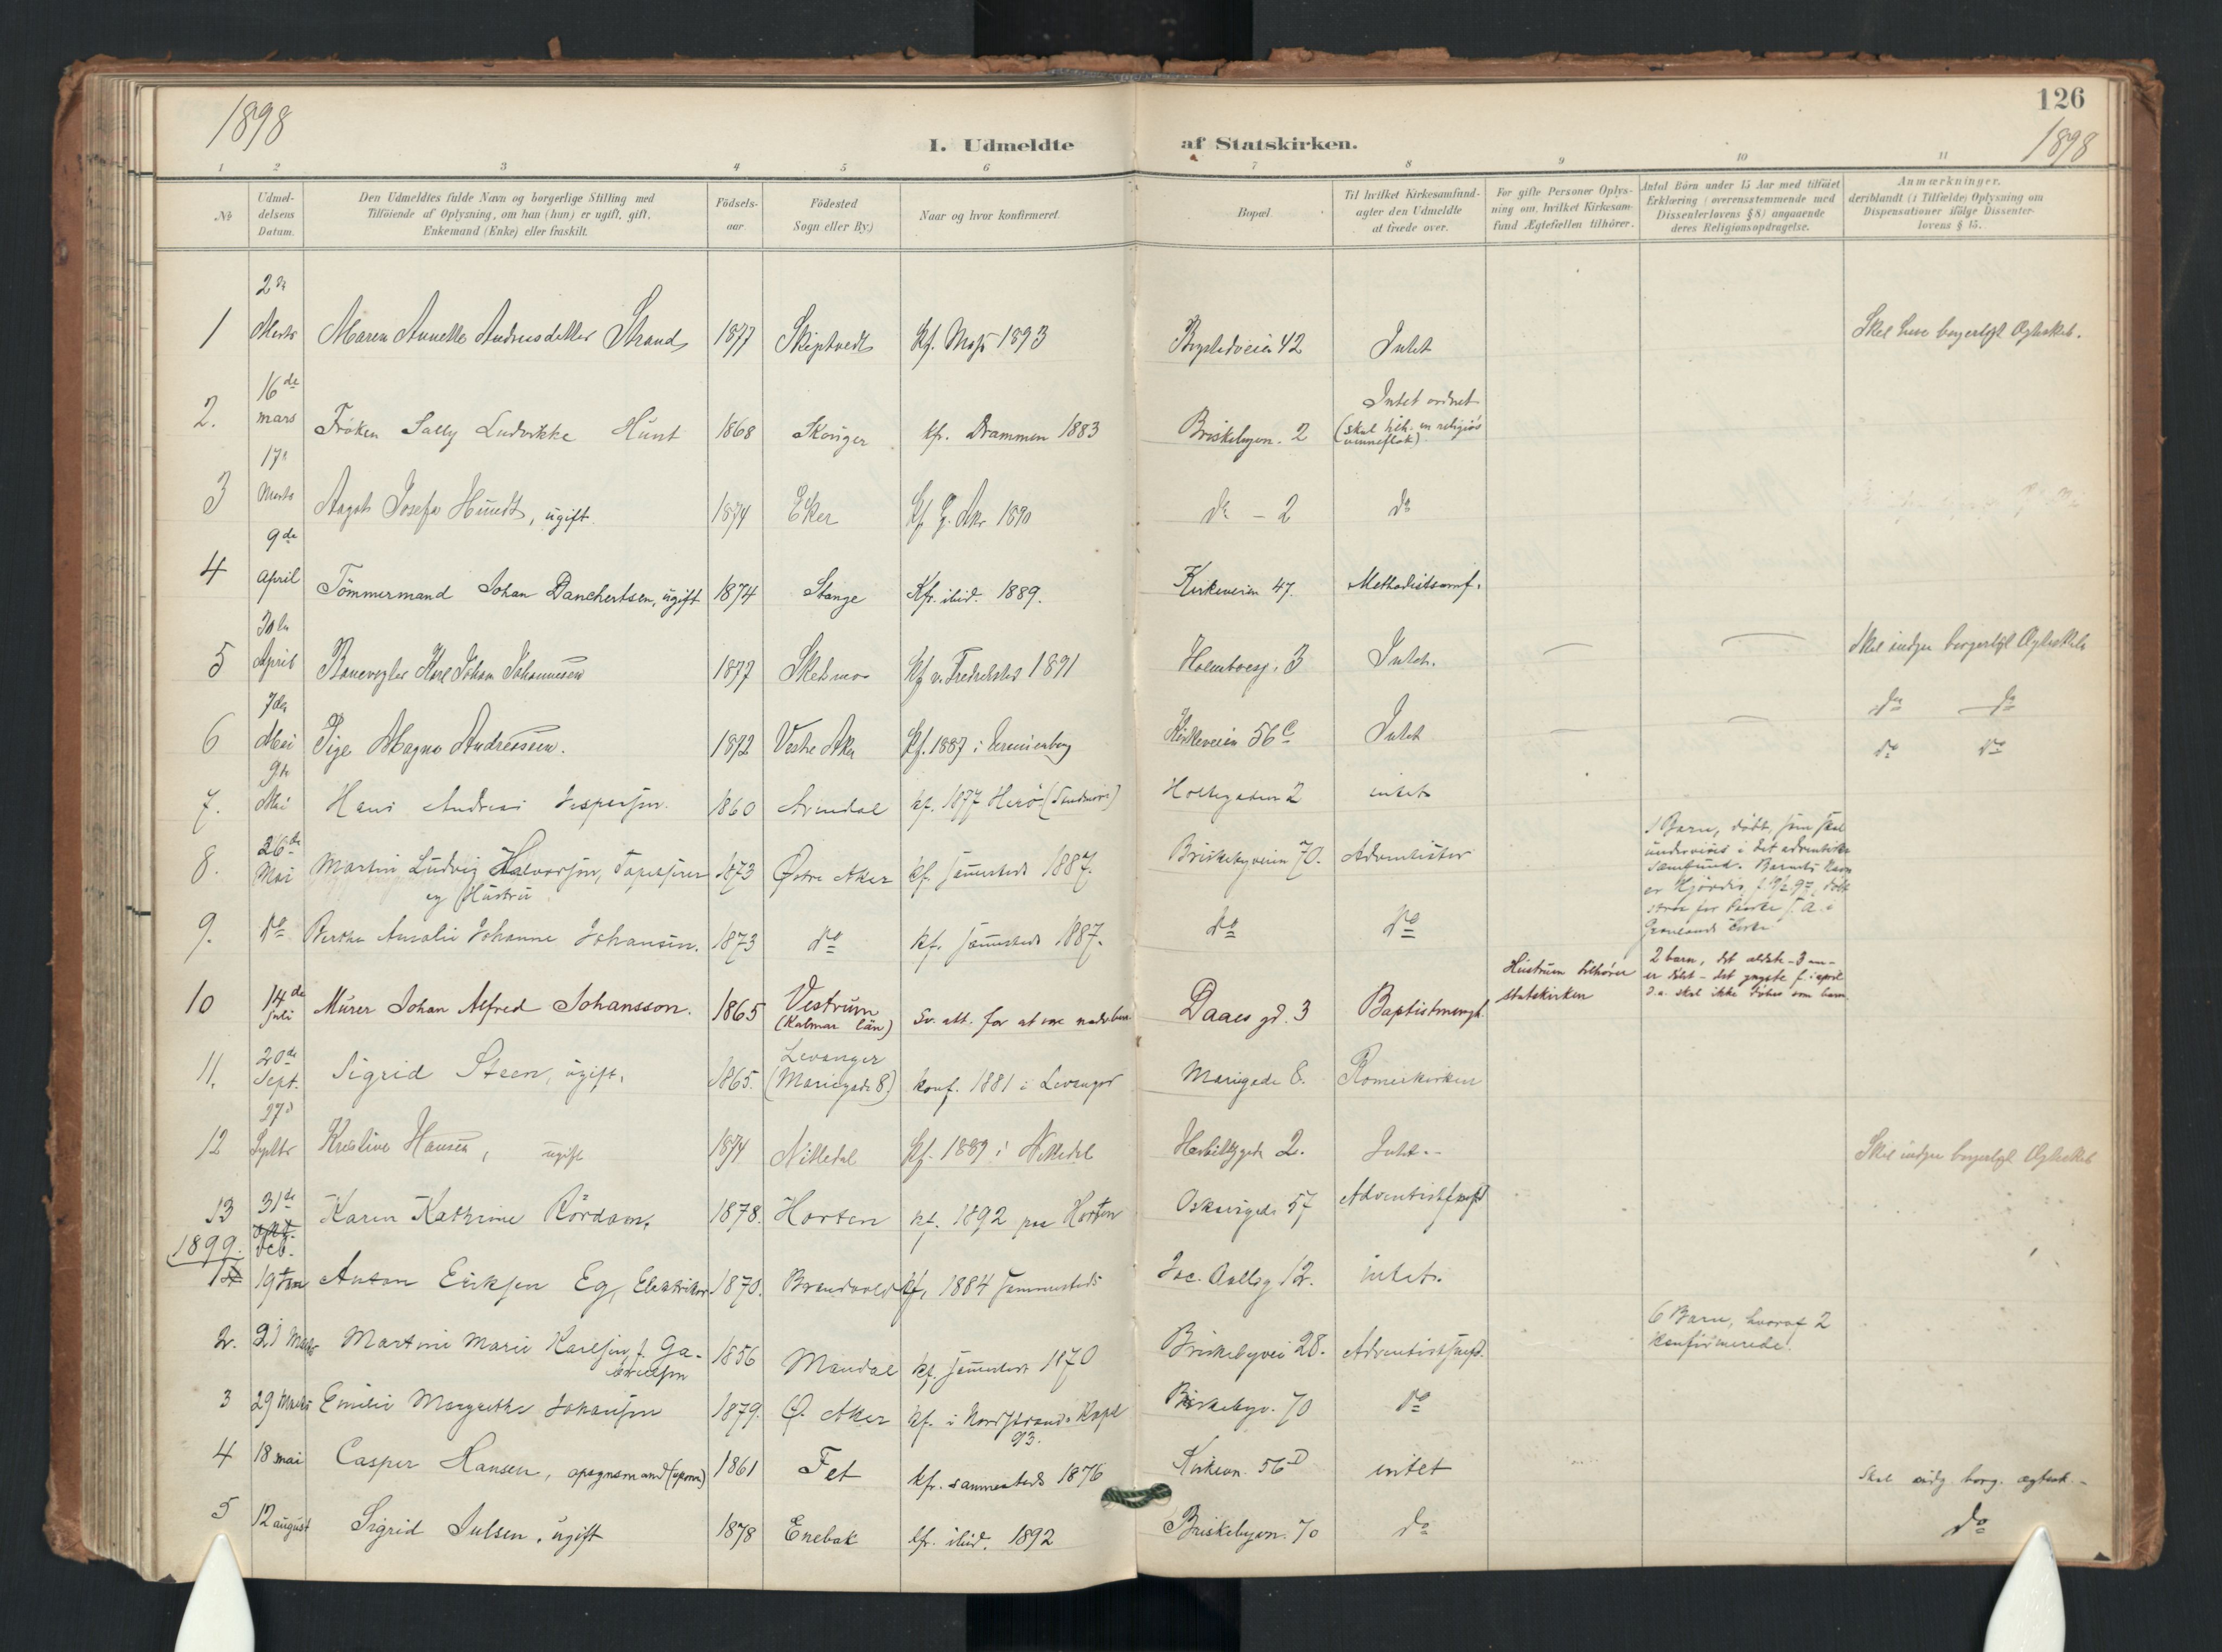 126
1898
1898
I. Udmeldte af Statskirken.
1 2 3 4 5 6 7 8 9 10 11
No
Udmel-
delsens
Datum.
Den Udmeldtes fulde Navn og borgerlige Stilling med
Tilføiende af Oplysning, om han (hun) er ugift, gift,
Enkemand (Enke) eller fraskilt.
Födsels-
aar
Födested
Sogn eller By.)
Naar og hvor konfirmeret.
Bopæl.
Til hvilket Kirkesamfund
agter den Udmeldte
at træde over.
For gifte Personer Oplys-
ning om, hvilket Kirkesam-
fund Ægtefællen tilhörer.
Antal Börn under 15 Aar med tilföiet
Erklæring (overensstemmende med
Dissenterlovens § 8) angaaende
deres Religionsopdragelse.
Anmærkninger,
deriblandt (i Tilfælde) Oplysning om
Dispensationer ifölge Dissenter-
lovens § 15.
1 2 Marts Maren Annette Andreasdatter Strand 1877 Skiptvedt Kf. Moss 1893 42 Intet Skal borgerligt Ægteskab.
2. 16de mars Fröken Sally Ludvikke Hunt 1868 Skouger kfr. Drammen 1883 Briskebyvn. 2 Intet ordnet
(skal tilh. en religiös
venneflok)
3 17 Marts Aagot Josefa Hundt, ugift 1874 Eker Kf. 1890 do - 2 do
4 9de april Tömmermand Johan Danchertsen, ugift 1874 Stange Kfr. ibid. 1889. Kirkeveien 47. Methodistsamf.
5 30 April Banevogter Karl Johan Johannesen 1877 Skedsmo Kf. v. Fredrikstad 1891 Holmboesg. 3 Intet. Skal indgaa borgerligt Ægteskab
6 7de Mai Pige Magna Andreassen. 1872 Vestre Aker Kf. 1887 i Kirkeveien 56 C Intet do do
7. 9 Mai Hans Andreas Jespersen. 1860 Arendal kf. 1877 Herö (Söndmör) Holtegaden 2 intet do do
8. 26de Mai Martin Ludvig Halvorsen, Tapetserer 1873 Østre Aker kf. sammesteds 1887. Briskebyveien 70. Adventister
og Hustru
1 Barn, döbt, som skal
undervises i det adventistiske
Samfund. Barnets Navn
er Hjördis,
Grönlands Kirke
9. do Berthe Amalie Johanne Johansen. 1873 do kf. sammesteds 1887. do do
10 14de juli Murer Johan Alfred Johansson. 1865 Vestrum
(Kalmar län) Sv. att. for at være Daaes gd. 3 Baptistmengh.
Hustruen tilhörer
statskirken
2 barn, det ældste - 3 aar -
er döbt - det yngste f. i april
d.a. skal ikke döbes som barn
11. 20de Sept. Sigrid Steen, ugift. 1865. Levanger
(Mariegade 8) konf. 1881 i Levanger Mariegade 8. Romerkirken
12 27 Septbr Kristine Hansen, ugift 1874 Nittedal Kf. 1889 i Nittedal 2. Intet. Skal indgaa borgerligt Ægteskab
13 31te okt.
Dcb. Karen Kathrine Rördam. 1878. Horten kf. 1892 paa Horten Oskarsgade 57 Adventistsamf.
1899.
1 19 Anton Eriksen Eg, Elektriker 1870. Brandvold kf. 1884 sammesteds Jac. Aallsg 12. intet.
2. 21 Marts Martine Marie Karlsen, f. Ga-
brielsen 1856 Mandal kf. sammesteds 1870 Briskebyvei 28. Adventistsamf.
6 Barn, hvoraf 2
konfirmerede.
3 29 Marts Emilie Margrethe Johansen 1879. Ø. Aker kf. i Nordstrands Kapel
93. Briskebyv. 70 do
4 18 mai Casper Hansen, opsynsmand 1861 Fet kfr. sammesteds 1876 Kirkevn. 56 D intet Skal indg. borg. ægtesk. -
5 12 august Sigrid Julsen, ugift 1878 Enebak kfr. ibid. 1892 Briskebyvn. 70 do do